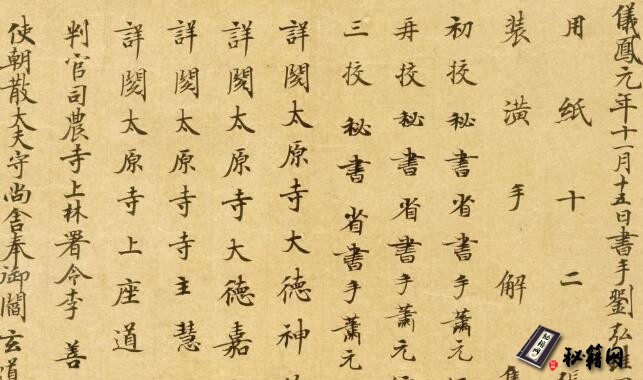 儀鳳元年十一月十五日書手劉弘
用紙十二張
装潢手解
初挍秘書省書手蕭元
再挍秘書省書手蕭元
三挍秘書省書手蕭元
詳閱太原寺大德神
詳閱太原寺大德嘉
詳閱太原寺寺主慧
詳閱太原寺上座道
判官司農寺上林署令李善
使朝散大夫守尚舍奉御閻玄道
秘籍网